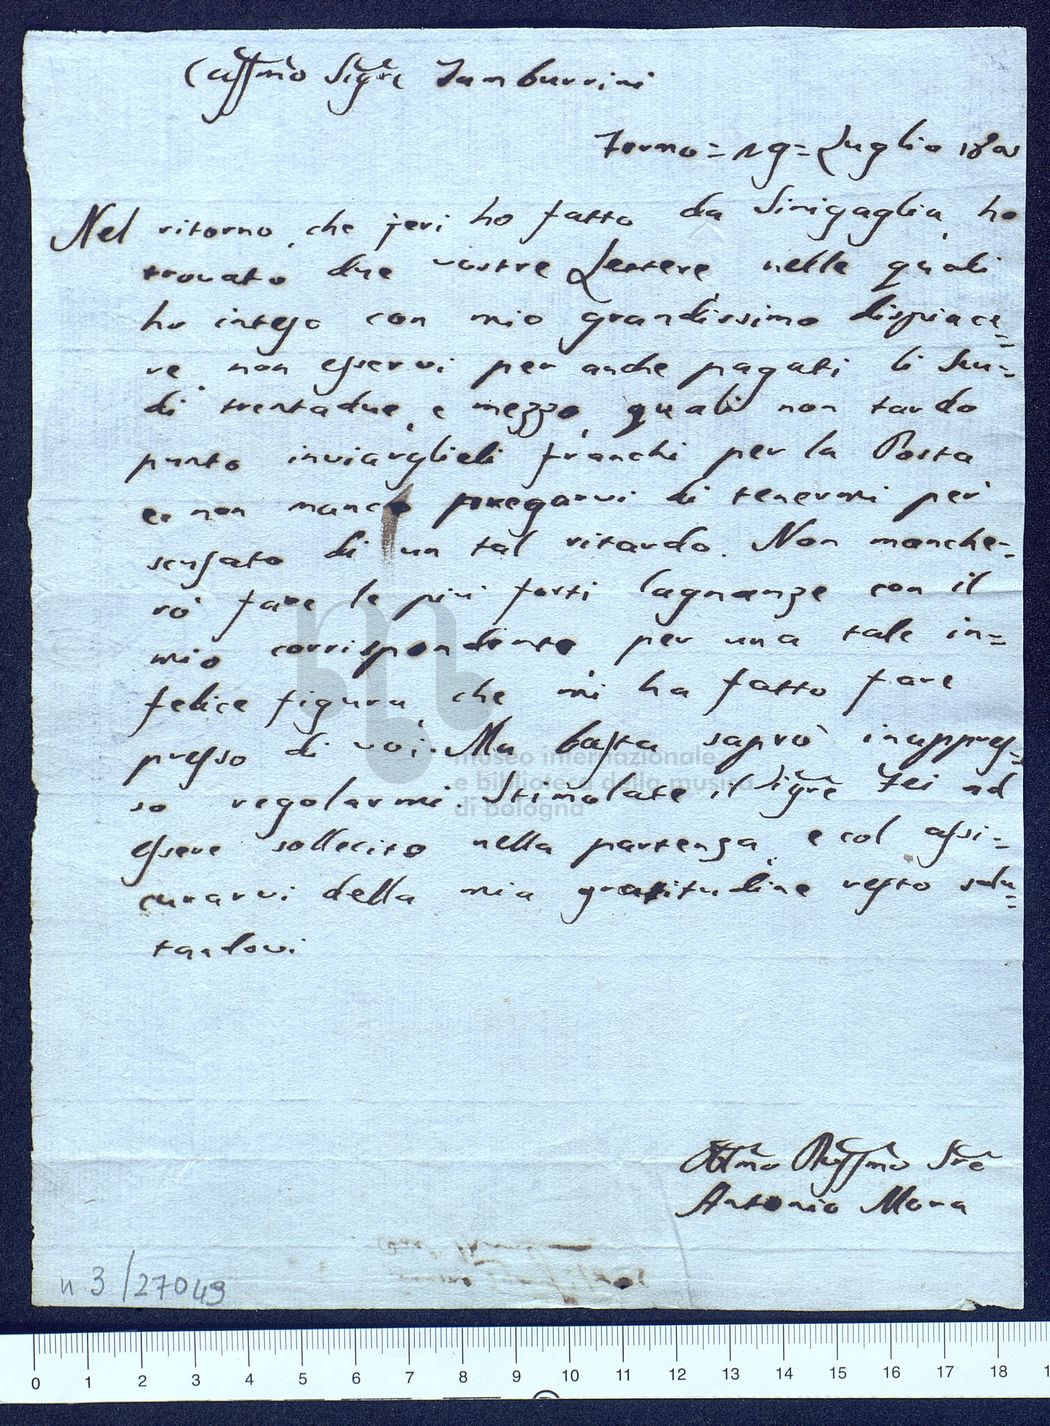 Cassmo Sigre Tamburrini
Fermo = 19 = Luglio
Nel ritorno, che jeri ho fatto da Sinigaglia, ho
trovato due vostre Lettere, nelle quali
ho inteso con mio grandissimo dispiace=
re, non esservi per anche pagati li Scu=
di trentadue, e mezzo, quali non tardo
punto inviarglieli franchi per la Posta
e non manco pregarvi di tenermi per
scusato di un tal ritardo. Non manche=
rò fare le più forti lagnanze con il
mio corrispondente, per una tale in=
felice figura, che mi ha fatto fare
presso di voi. Ma basta saprò inappres=
so regolarmi. Stimolate il Sigre Fei ad
essere sollecito nella partenza, e col assi=
curarvi della mia gratitudine resto salu=
tandovi
Antonio Mora
n. 3 / 27049
museo internazionale
e biblioteca della musica
di bologna
0 1 2 3 4 5 6 7 8 9 10 11 12 13 14 15 16 17 18 1